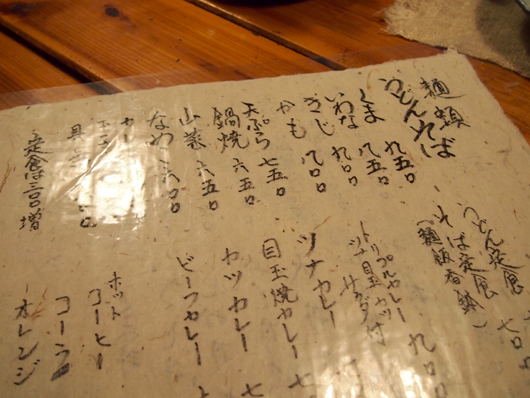 麺類
うどんそば
くま 九五〇
いわな 八五〇
きじ 九〇〇
かも 八〇〇
天ぷら 七五〇
鍋焼 六五〇
山菜 六五〇
なめこ 六〇〇
定食は三〇〇増
うどん定食
そば定食 七〇〇
トリプルカレー
ツナ目玉カツ付 九〇〇
サラダ
ツナカレー
目玉焼カレー 七
カツカレー 七
ビーフカレー
ホット
コーヒー
コーラ
オレンジ